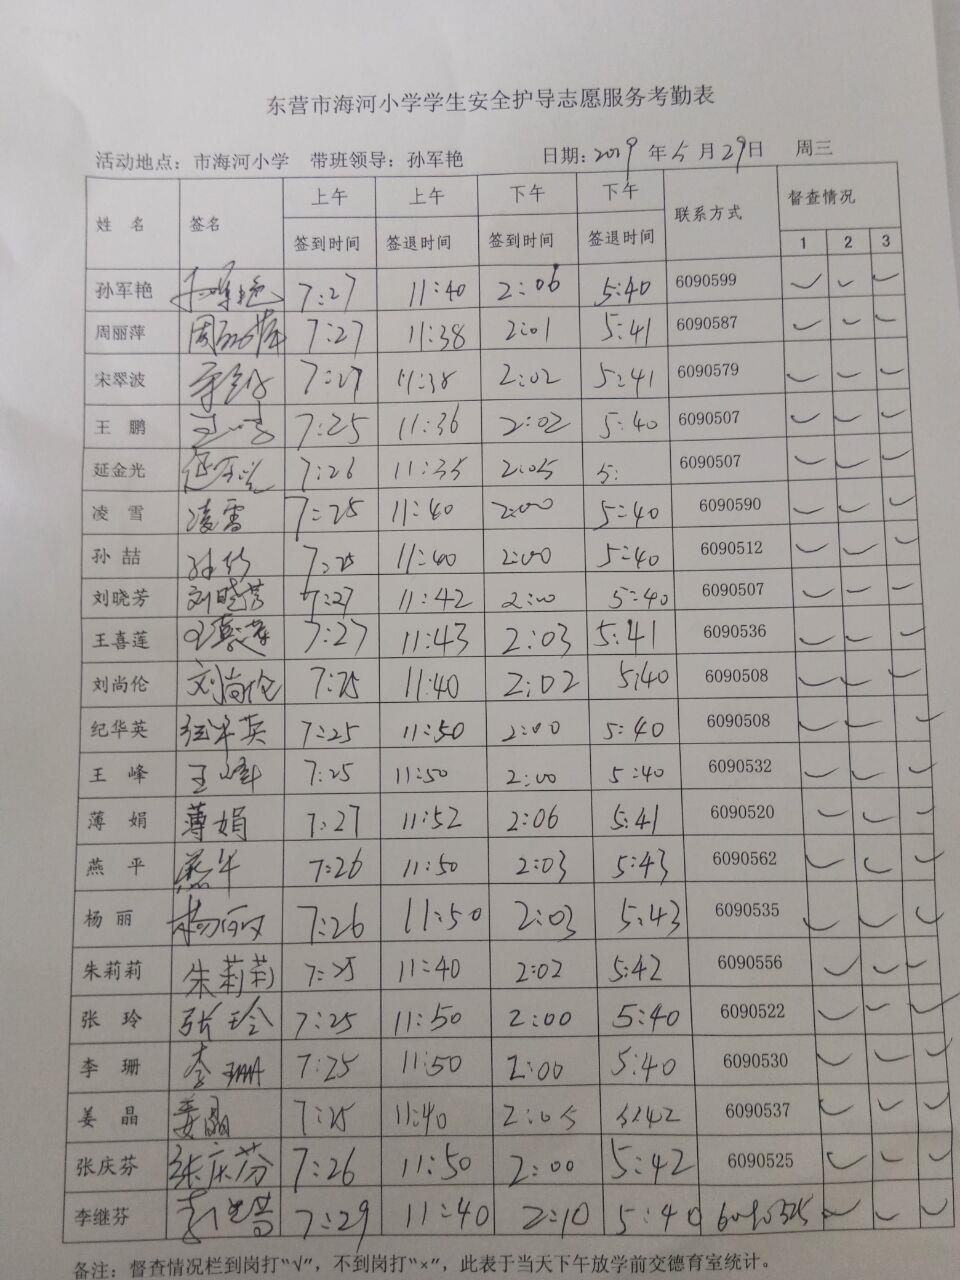 东营市海河小学学生安全护导志愿服务考勤表
活动地点：市海河小学 带班领导：孙军艳 日期：2019 年 5 月 29日 周三
姓 名 签名 上午 上午 下午 下午 联系方式 督查情况
签到时间 签退时间 签到时间 签退时间 1 2 3
孙军艳 孙军艳 7:27 11:40 2:06 5:40 6090599 ✓ ✓ ✓
周丽萍 周丽萍 7:27 11:38 2:01 5:41 6090587 ✓ ✓ ✓
宋翠波 7:27 11:38 2:02 5:41 6090579 ✓ ✓ ✓
王 鹏 王鹏 7:25 11:36 2:02 5:40 6090507 ✓ ✓ ✓
延金光 延金光 7:26 11:35 2:05 5: 6090507 ✓ ✓ ✓
凌 雪 凌雪 7:25 11:40 2:00 5:40 6090590 ✓ ✓ ✓
孙 喆 孙喆 7:25 11:40 2:00 5:40 6090512 ✓ ✓ ✓
刘晓芳 刘晓芳 7:27 11:42 2:00 5:40 6090507 ✓ ✓ ✓
王喜莲 王喜莲 7:27 11:43 2:03 5:41 6090536 ✓ ✓ ✓
刘尚伦 刘尚伦 7:25 11:40 2:02 5:40 6090508 ✓ ✓ ✓
纪华英 纪华英 7:25 11:50 2:00 5:40 6090508 ✓ ✓ ✓
王 峰 王峰 7:25 11:50 2:00 5:40 6090532 ✓ ✓ ✓
薄 娟 薄娟 7:27 11:52 2:06 5:41 6090520 ✓ ✓ ✓
燕 平 燕平 7:26 11:50 2:03 5:43 6090562 ✓ ✓ ✓
杨 丽 杨丽 7:26 11:50 2:03 5:43 6090535 ✓ ✓ ✓
朱莉莉 朱莉莉 7:25 11:40 2:02 5:42 6090556 ✓ ✓ ✓
张 玲 张玲 7:25 11:50 2:00 5:40 6090522 ✓ ✓ ✓
李 珊 李珊 7:25 11:50 2:00 5:40 6090530 ✓ ✓ ✓
姜 晶 姜晶 7:25 11:40 2:05 5:42 6090537 ✓ ✓ ✓
张庆芬 张庆芬 7:26 11:50 2:00 5:42 6090525 ✓ ✓ ✓
李继芬 7:29 11:40 2:10 5:40 6090525 ✓ ✓ ✓
备注：督查情况栏到岗打“√”，不到岗打“×”，此表于当天下午放学前交德育室统计。